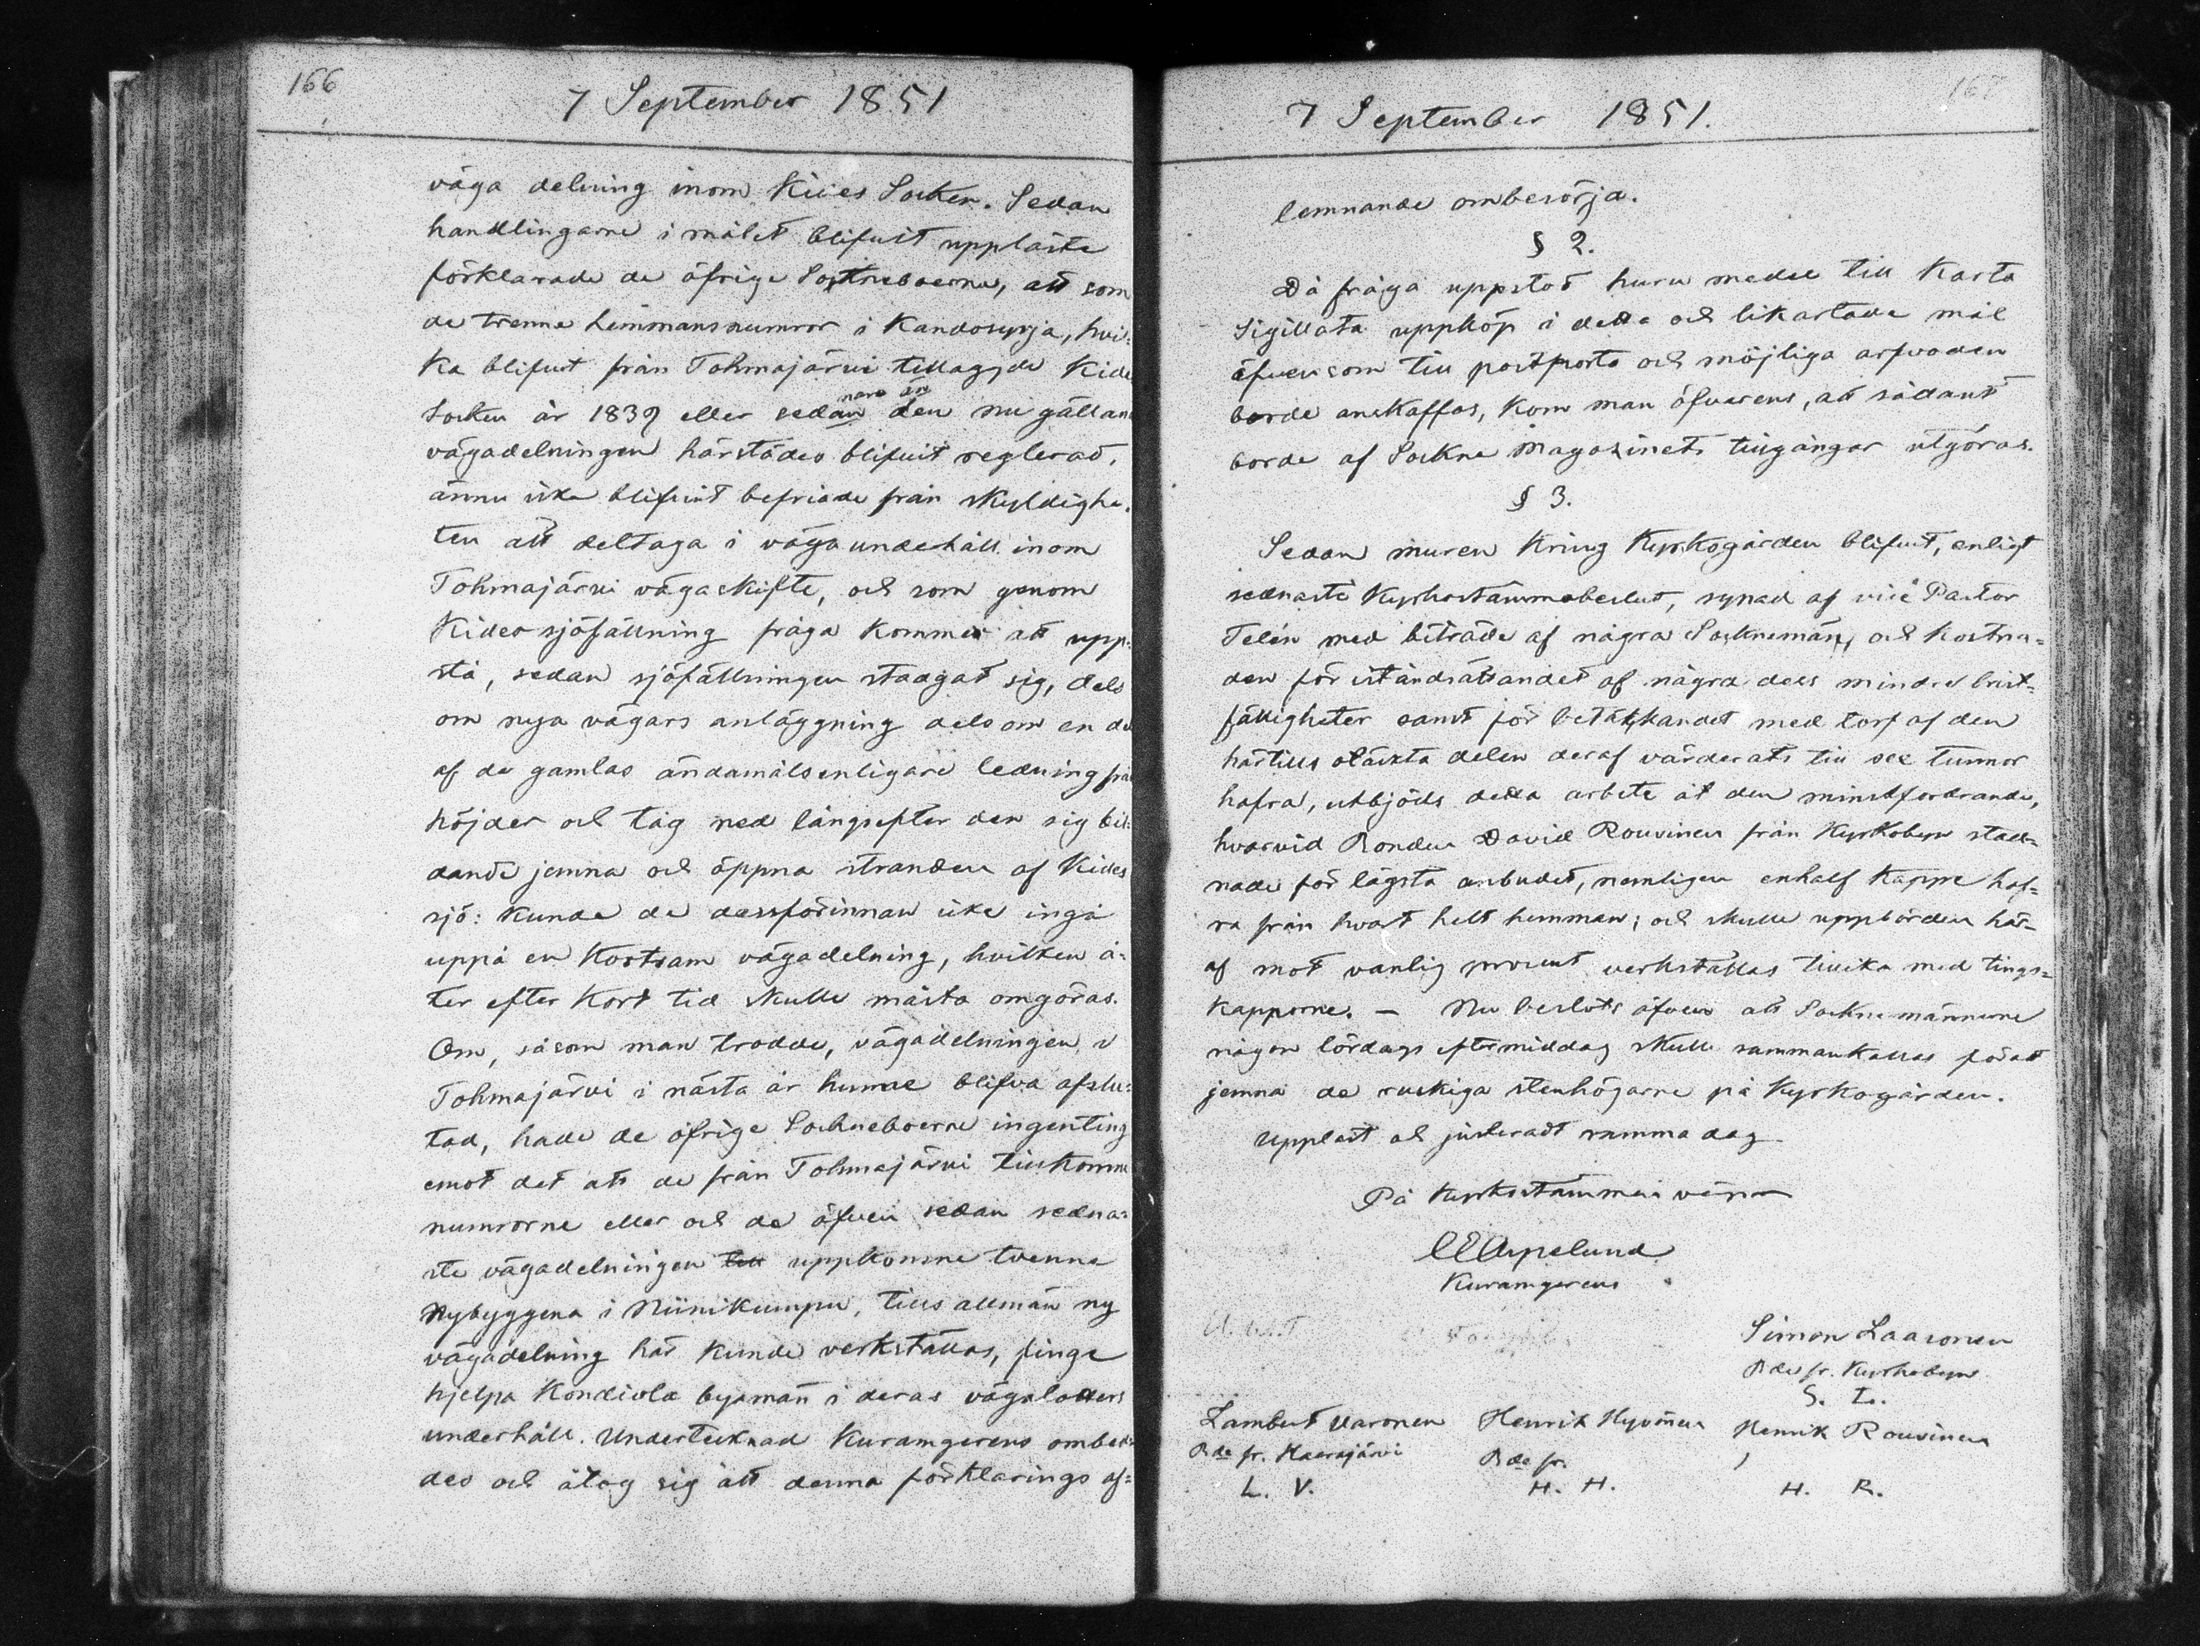 166
7 September 1851
väga delning inom Kides Socken. Sedan
handlingarne i målet blifvit upplästa
förklarade de öfrige Sockneboerne, att som
de trenne hemmansnumror i Kandosyrja, hvil-
ka blifvit från Tohmajärvi tillagde Kide
Socken år 1839 eller sedan den nu gällan
vägadelningen härstädes blifvit reglerad,
ännu icke blifvit befriade från skyldighe-
ten att deltaga i väga underhåll inom
Tohmajärvi vägaskifte, och som genom
Kides sjöfällning fråga kommer att upp-
stå, sedan sjöfällningen stadgat sig, dels
om nya vägars anläggning dels om en del
af de gamlas ändamålsenligare ledning från
höjder och tåg ned långsefter den sig bil-
dande jemna och öppna stranden af Kides
sjö: kunde de dessförinnan icke ingå
uppå en kostsam vägadelning, hvilken å-
ter efter kort tid skulle måsta omgöras.
Om, såsom man trodde, vägadelningen i
Tohmajärvi i nästa år hunne blifva afslu-
tad, hade de öfrige Sockneboerne ingenting
emot det att de från Tohmajärvi tillkomne
numrorne eller och de äfven sedan sedna-
ste vägadelningen uppkomne tvenne
Nybyggena i Niinikumpu, tills allmän ny
vägadelning här kunde verkställas, finge
hjelpa Kondivola byamän i deras vägalotters
underhåll. Undertecknad Kuramgerens ombed-
des och åtog sig att denna förklarings af-
167
7 September 1851.
lemnande ombesörja.
§ 2.
Då fråga uppstod huru medel till Karta
Sigillata uppköp i detta och likartade mål
äfvensom till postporto och möjliga arfvoden
borde anskaffas, kom man öfverens, att sådant
borde af Sockne Magasinets tillgångar utgöras.
§ 3.
Sedan muren kring Kyrkogården blifvit, enligt
sednaste Kyrkostämmobeslut, synad af vice Pastor
Telén med biträde af några Socknemän, och kostna-
den för iståndsättandet af några dess mindre brist-
fälligheter samt för betäckandet med torf af den
härtills otäckta delen deraf värderats till sex tunnor
hafra, utbjöds detta arbete åt den minstfordrande,
hvarvid Bonden David Rouvinen från Kyrkobyn stad-
nade för lägsta anbudet, nemligen en half kappe haf-
ra från hvart helt hemman; och skulle uppbörden här-
af mot vanlig procent verkställas tillika med tings-
kapporne. – Nu beslöts äfven att Socknemännerne
någon lördags eftermiddag skulle sammankallas för att
jemna de ruskiga stenhögarne på Kyrkogården.
Uppläst och justeradt samma dag
På Kyrkostämmans vägnar
Kuramgerens
Simon Laasonen
Bde fr. Kyrkobyn
S. L.
Lambert Varonen Henrik Hyvönen Henrik Rouvinen
Bde fr. Haarajärvi Bde fr.
L. V. H. H. H. R.